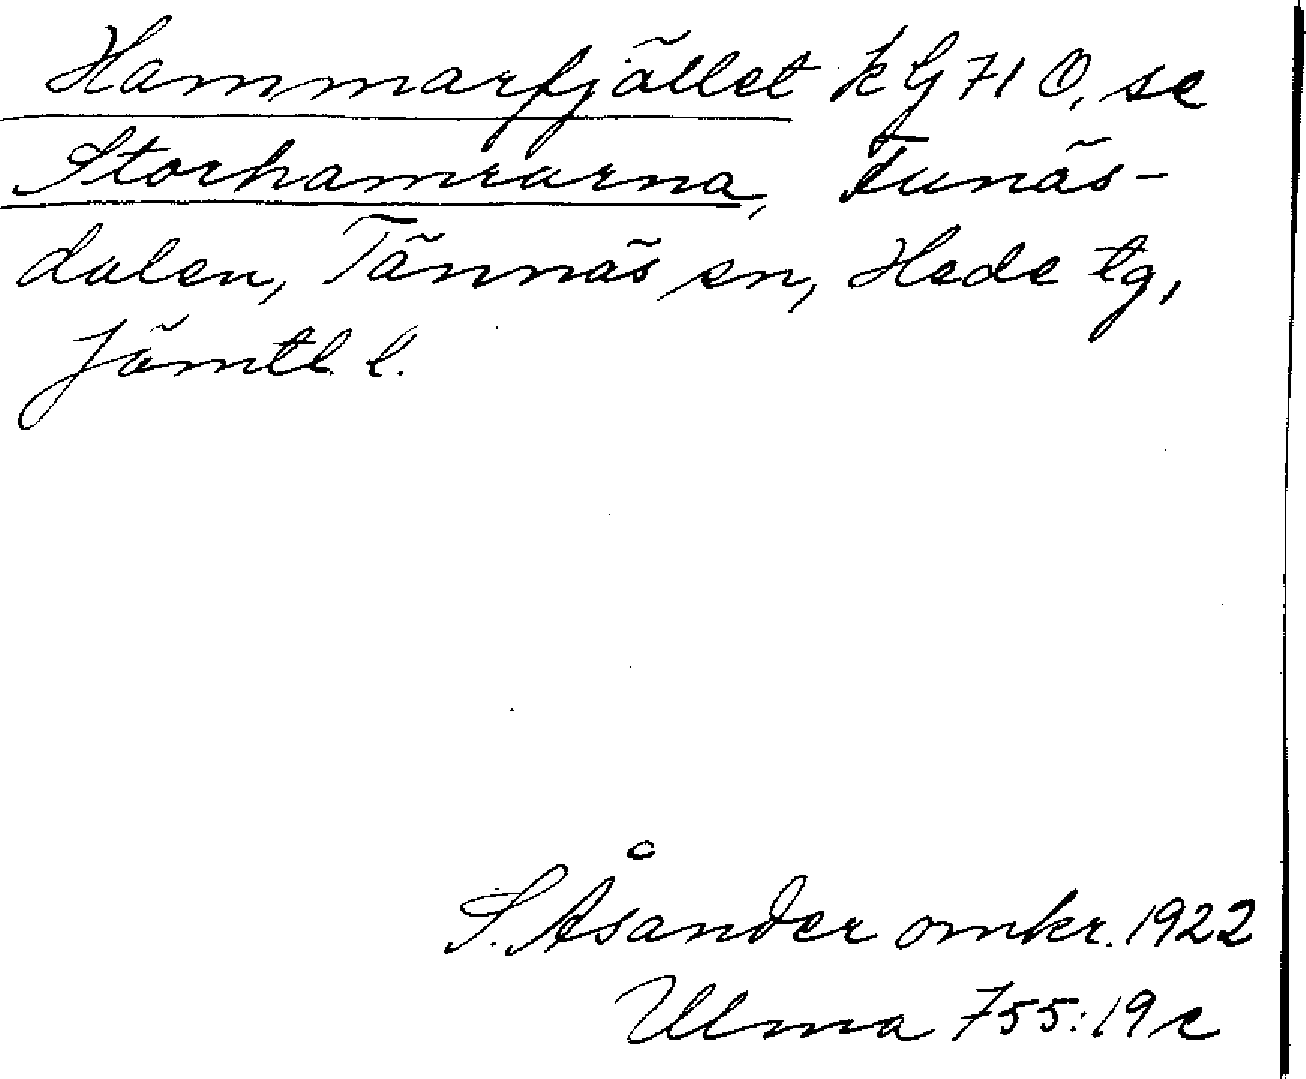 Hammarfjället k G 71 O, se
Storhamrarna, Funäs-
dalen, Tännäs sn, Hede tg,
Jämtl. l.
S. Åsander omkr. 1922
Ulma 755:19 c